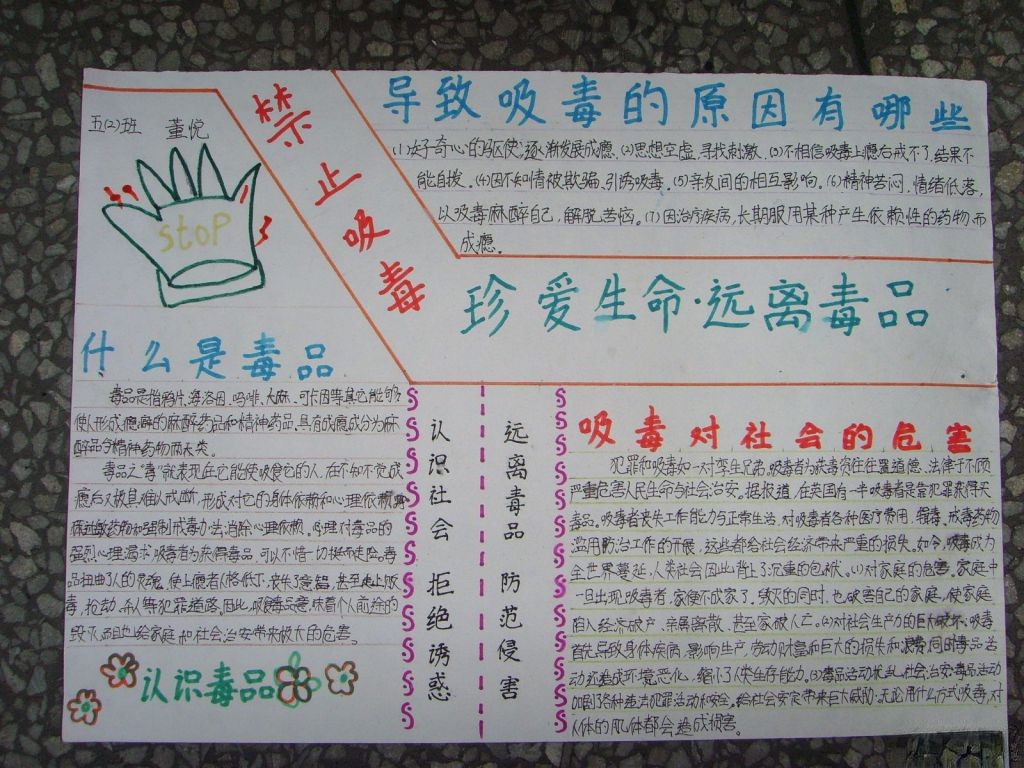 五(2)班 董悦
stop
禁止吸毒
导致吸毒的原因有哪些
(1)好奇心的驱使逐渐发展成瘾.(2)思想空虚.寻找刺激.(3)不相信吸毒上瘾后戒不了.结果不
能自拔.(4)因不知情被欺骗.引诱吸毒.(5)亲友间的相互影响.(6)精神苦闷.情绪低落,
以吸毒麻醉自己,解脱苦恼.(7)因治疗疾病,长期服用某种产生依赖性的药物而
成瘾.
珍爱生命·远离毒品
什么是毒品
毒品是指鸦片.海洛因.吗啡.大麻.可卡因等其它能够
使人形成瘾癖的麻醉药品和精神药品.具有成瘾成分为麻
醉品与精神药物两大类.
毒品之"毒"就表现在它能使吸食它的人.在不知不觉成
瘾后又极其难以戒断,形成对它的身体依赖和心理依赖.
药物和强制戒毒办法消除心理依赖.心理对毒品的
强烈心理渴求吸毒者为获得毒品,可以不惜一切铤而走险.毒
品扭曲了人的灵魂,使上瘾者人格低下,丧失了意智,甚至走上贩
毒,抢劫.杀人等犯罪道路.因此,吸食毒品意味着个人前途的
毁灭而且也给家庭和社会治安带来极大的危害.
认识毒品
认识社会 拒绝诱惑
远离毒品 防范侵害
吸毒对社会的危害
犯罪和吸毒如一对孪生兄弟,吸毒者为获毒资往往置道德、法律于不顾
严重危害人民生命与社会治安。据报道,在英国有一半吸毒者是靠犯罪获得买
毒品。吸毒者丧失工作能力与正常生活,对吸毒者各种医疗费用,缉毒、戒毒药物
滥用防治工作的开展,这些都给社会经济带来严重的损失。如今,吸毒成为
全世界蔓延,人类社会因此背上了沉重的包袱。(1)对家庭的危害。家庭中
一旦出现吸毒者,家便不成家了。毁灭的同时,也破害自己的家庭,使家庭
陷入经济破产、亲属离散、甚至家破人亡。(2)对社会生产力的巨大破坏:吸毒
首先导致身体疾病,影响生产,劳动财富和巨大的损失和浪费,同时毒品活
动还造成环境恶化,缩小了人类生存能力。(3)毒品活动扰乱社会治安:毒品活动
加剧了各种违法犯罪活动和安全.给社会安定带来巨大威胁.无论用什么方式吸毒,对
人体的肌体都会造成损害。